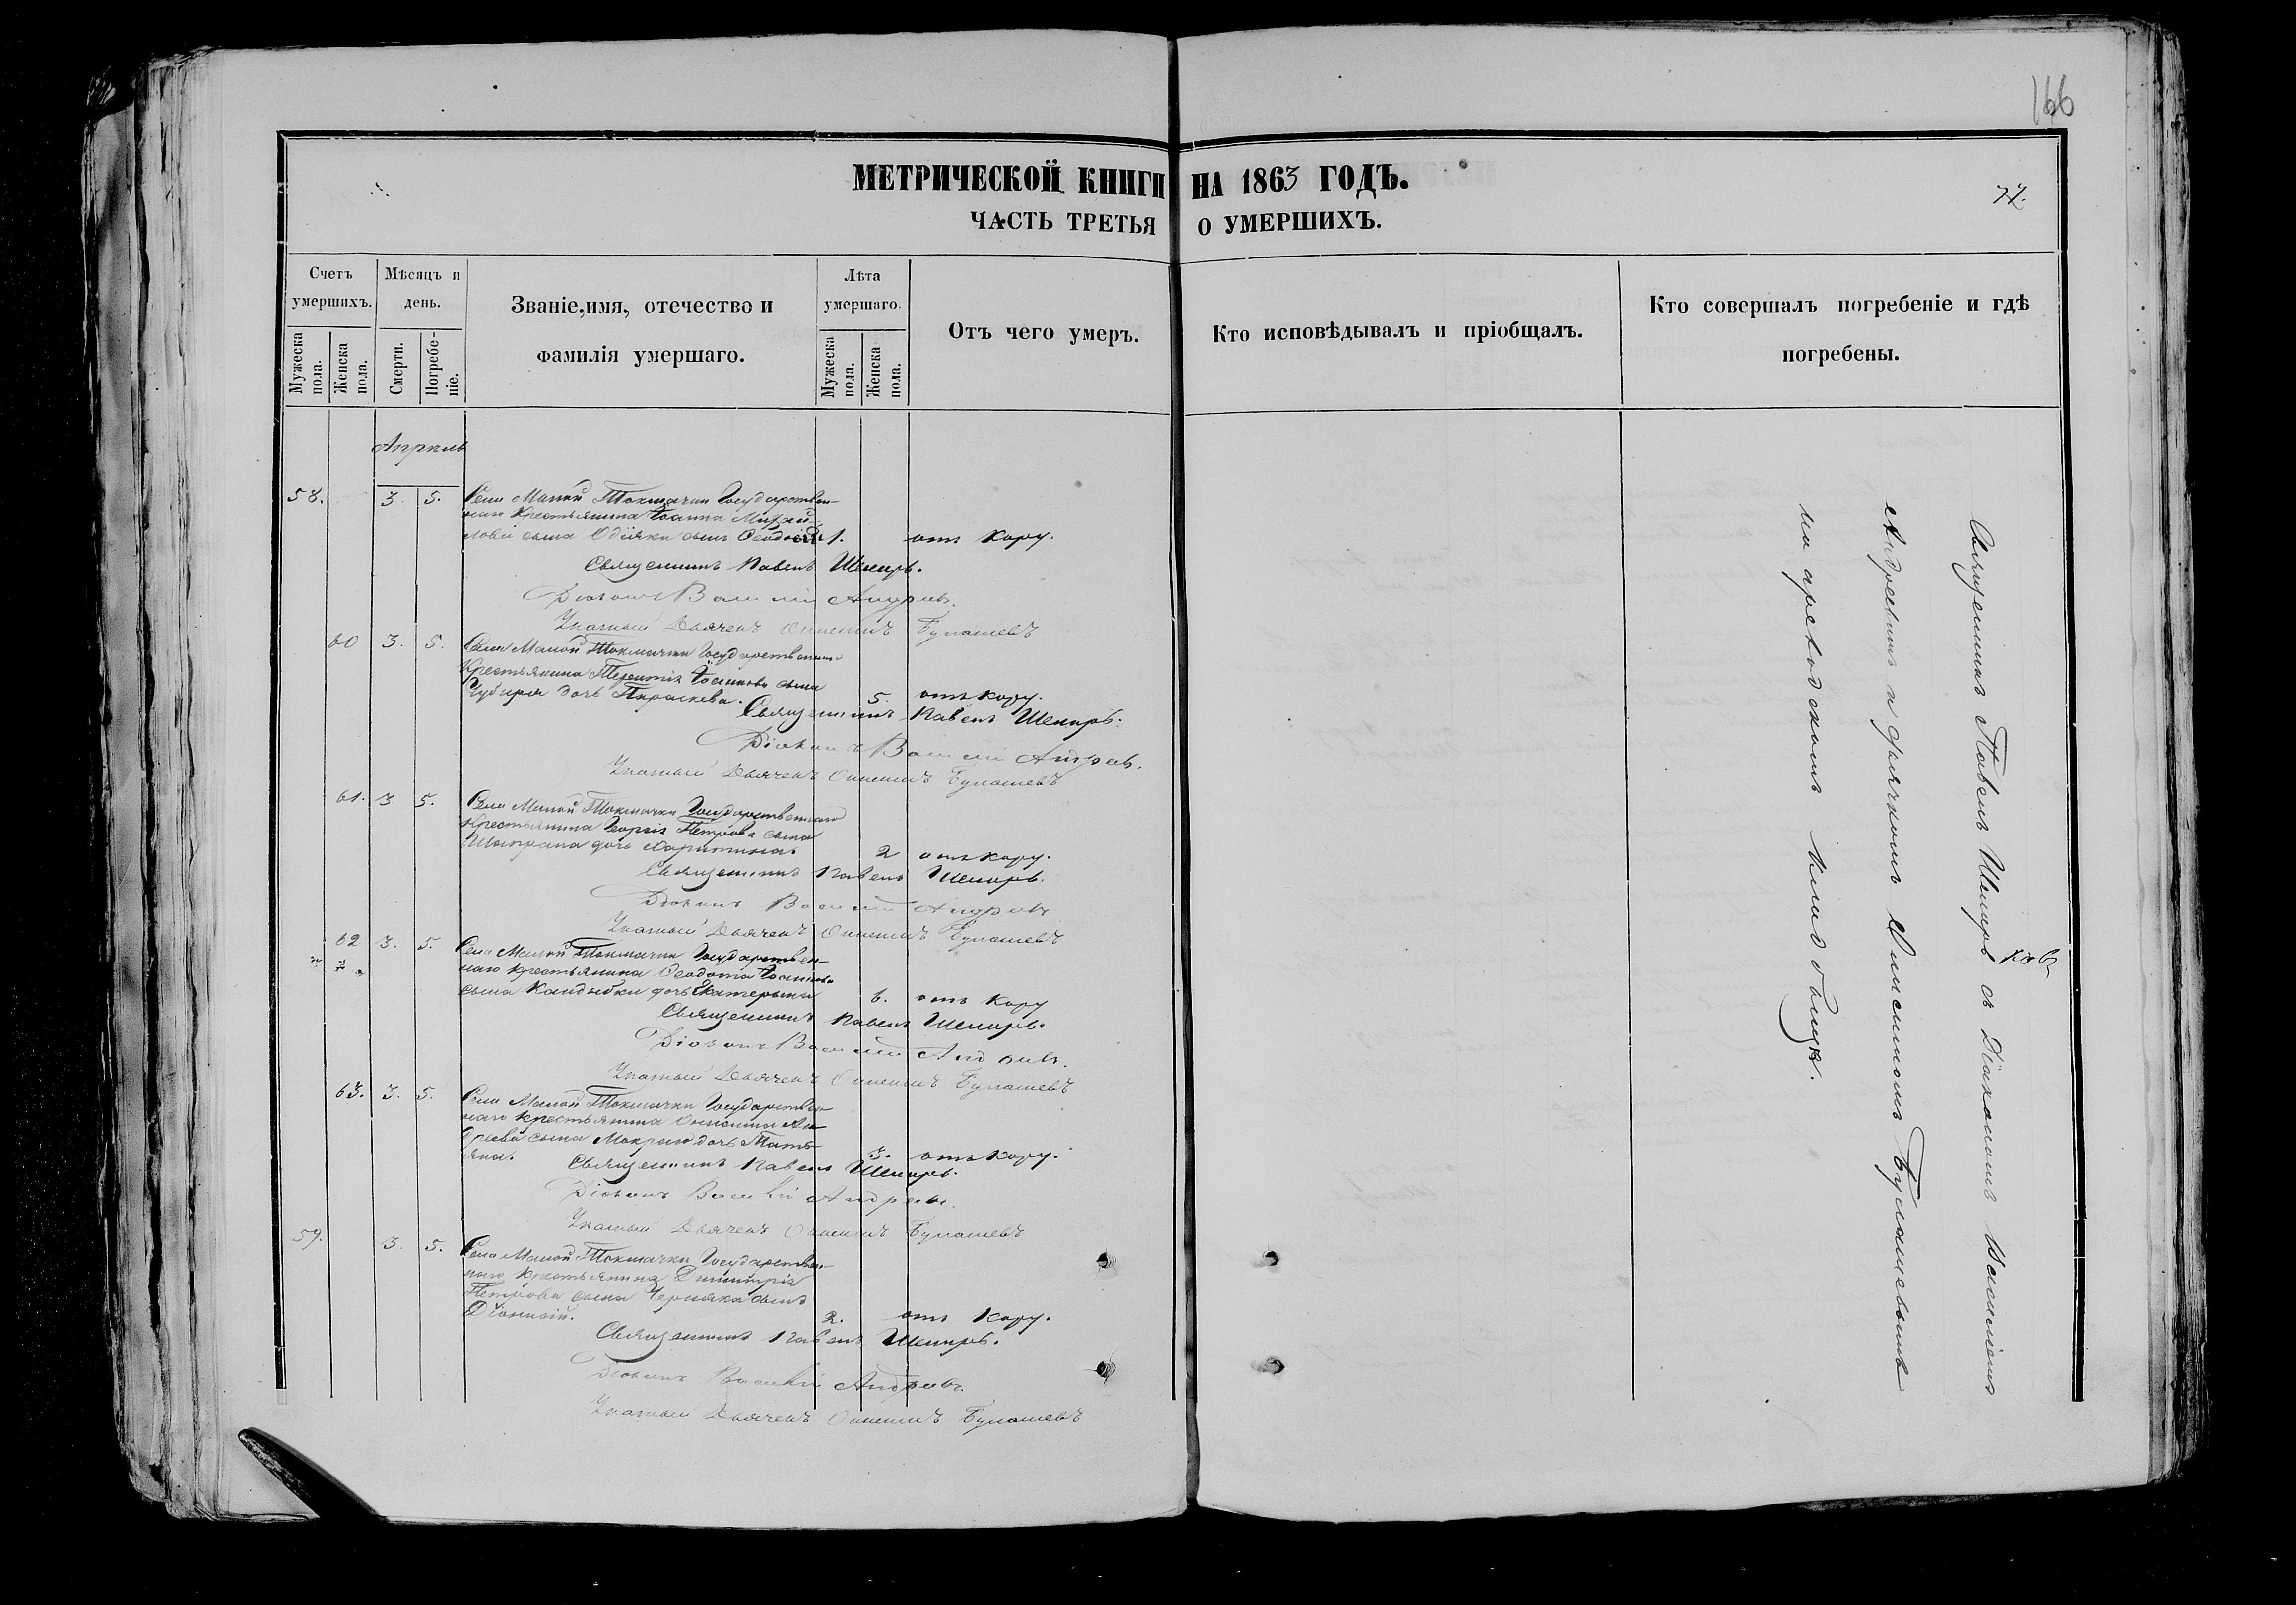 166
МЕТРИЧЕСКОЙ КНИГИ НА 1863 ГОДЪ.
77.
ЧАСТЬ ТРЕТЬЯ О УМЕРШИХЪ.
Счетъ умершихъ.
Мужеска пола.
Женска пола.
Мѣсяцъ и день.
Смерти.
Погребеніе.
Званіе, имя, отечество и фамилія умершаго.
Лѣта умершаго.
Мужеска пола.
Женска пола.
Отъ чего умеръ.
Кто исповѣдывалъ и пріобщалъ.
Кто совершалъ погребеніе и гдѣ погребены.
Апрѣль
58. 3. 5. Села Малой Токмачки Государствен-
наго Крестьянина Іоанна Михай-
лова сына сынъ Феодосій 1. отъ кору.
Священникъ Павелъ
Діаконъ Василій Андреевъ.
Указный Дьячекъ Онисимъ Булашевъ
60 3. 5. Села Малой Токмачки Государственнаго
Крестьянина Терентія Іоаннова сына
Чубиря дочь Параскева. 5. отъ кору.
Священникъ Павелъ
Діаконъ Василій Андреевъ.
Указный Дьячекъ Онисимъ Булашевъ
61. 3 5. Села Малой Токмачки Государственнаго
Крестьянина Георгія Петрова сына
Шапрана дочь Харитина. 2 отъ кору.
Священникъ Павелъ
Діаконъ Василій Андреевъ
Указный Дьячекъ Онисимъ Булашевъ
62 3. 5. Села Малой Токмачки Государствен-
наго крестьянина Феодота Іоаннова
сына Кандыбки дочь Екатерина 6. отъ кору
Священникъ Павелъ
Діаконъ Василій Андреевъ.
Указный Дьячекъ Онисимъ Булашевъ
63. 3. 5. Села Малой Токмачки Государствен-
наго крестьянина Ан-
дреева сына дочь Тать-
яна. 3. отъ кору.
Священникъ Павелъ
Діаконъ Василій Андреевъ.
Указный Дьячекъ Онисимъ Булашевъ
59. 3. 5. Села Малой Токмачки Государствен-
наго Крестьянина Димитрія
Петрова сына Черняка сынъ
Діонисій. 2. отъ кору.
Священникъ Павелъ
Діаконъ Василій Андреевъ.
Указный Дьячекъ Онисимъ Булашевъ
Священникъ Павелъ съ Діакономъ Василіемъ
Андреевымъ и дьячкомъ Онисимомъ Булашевымъ
на приходскомъ кладбищѣ.